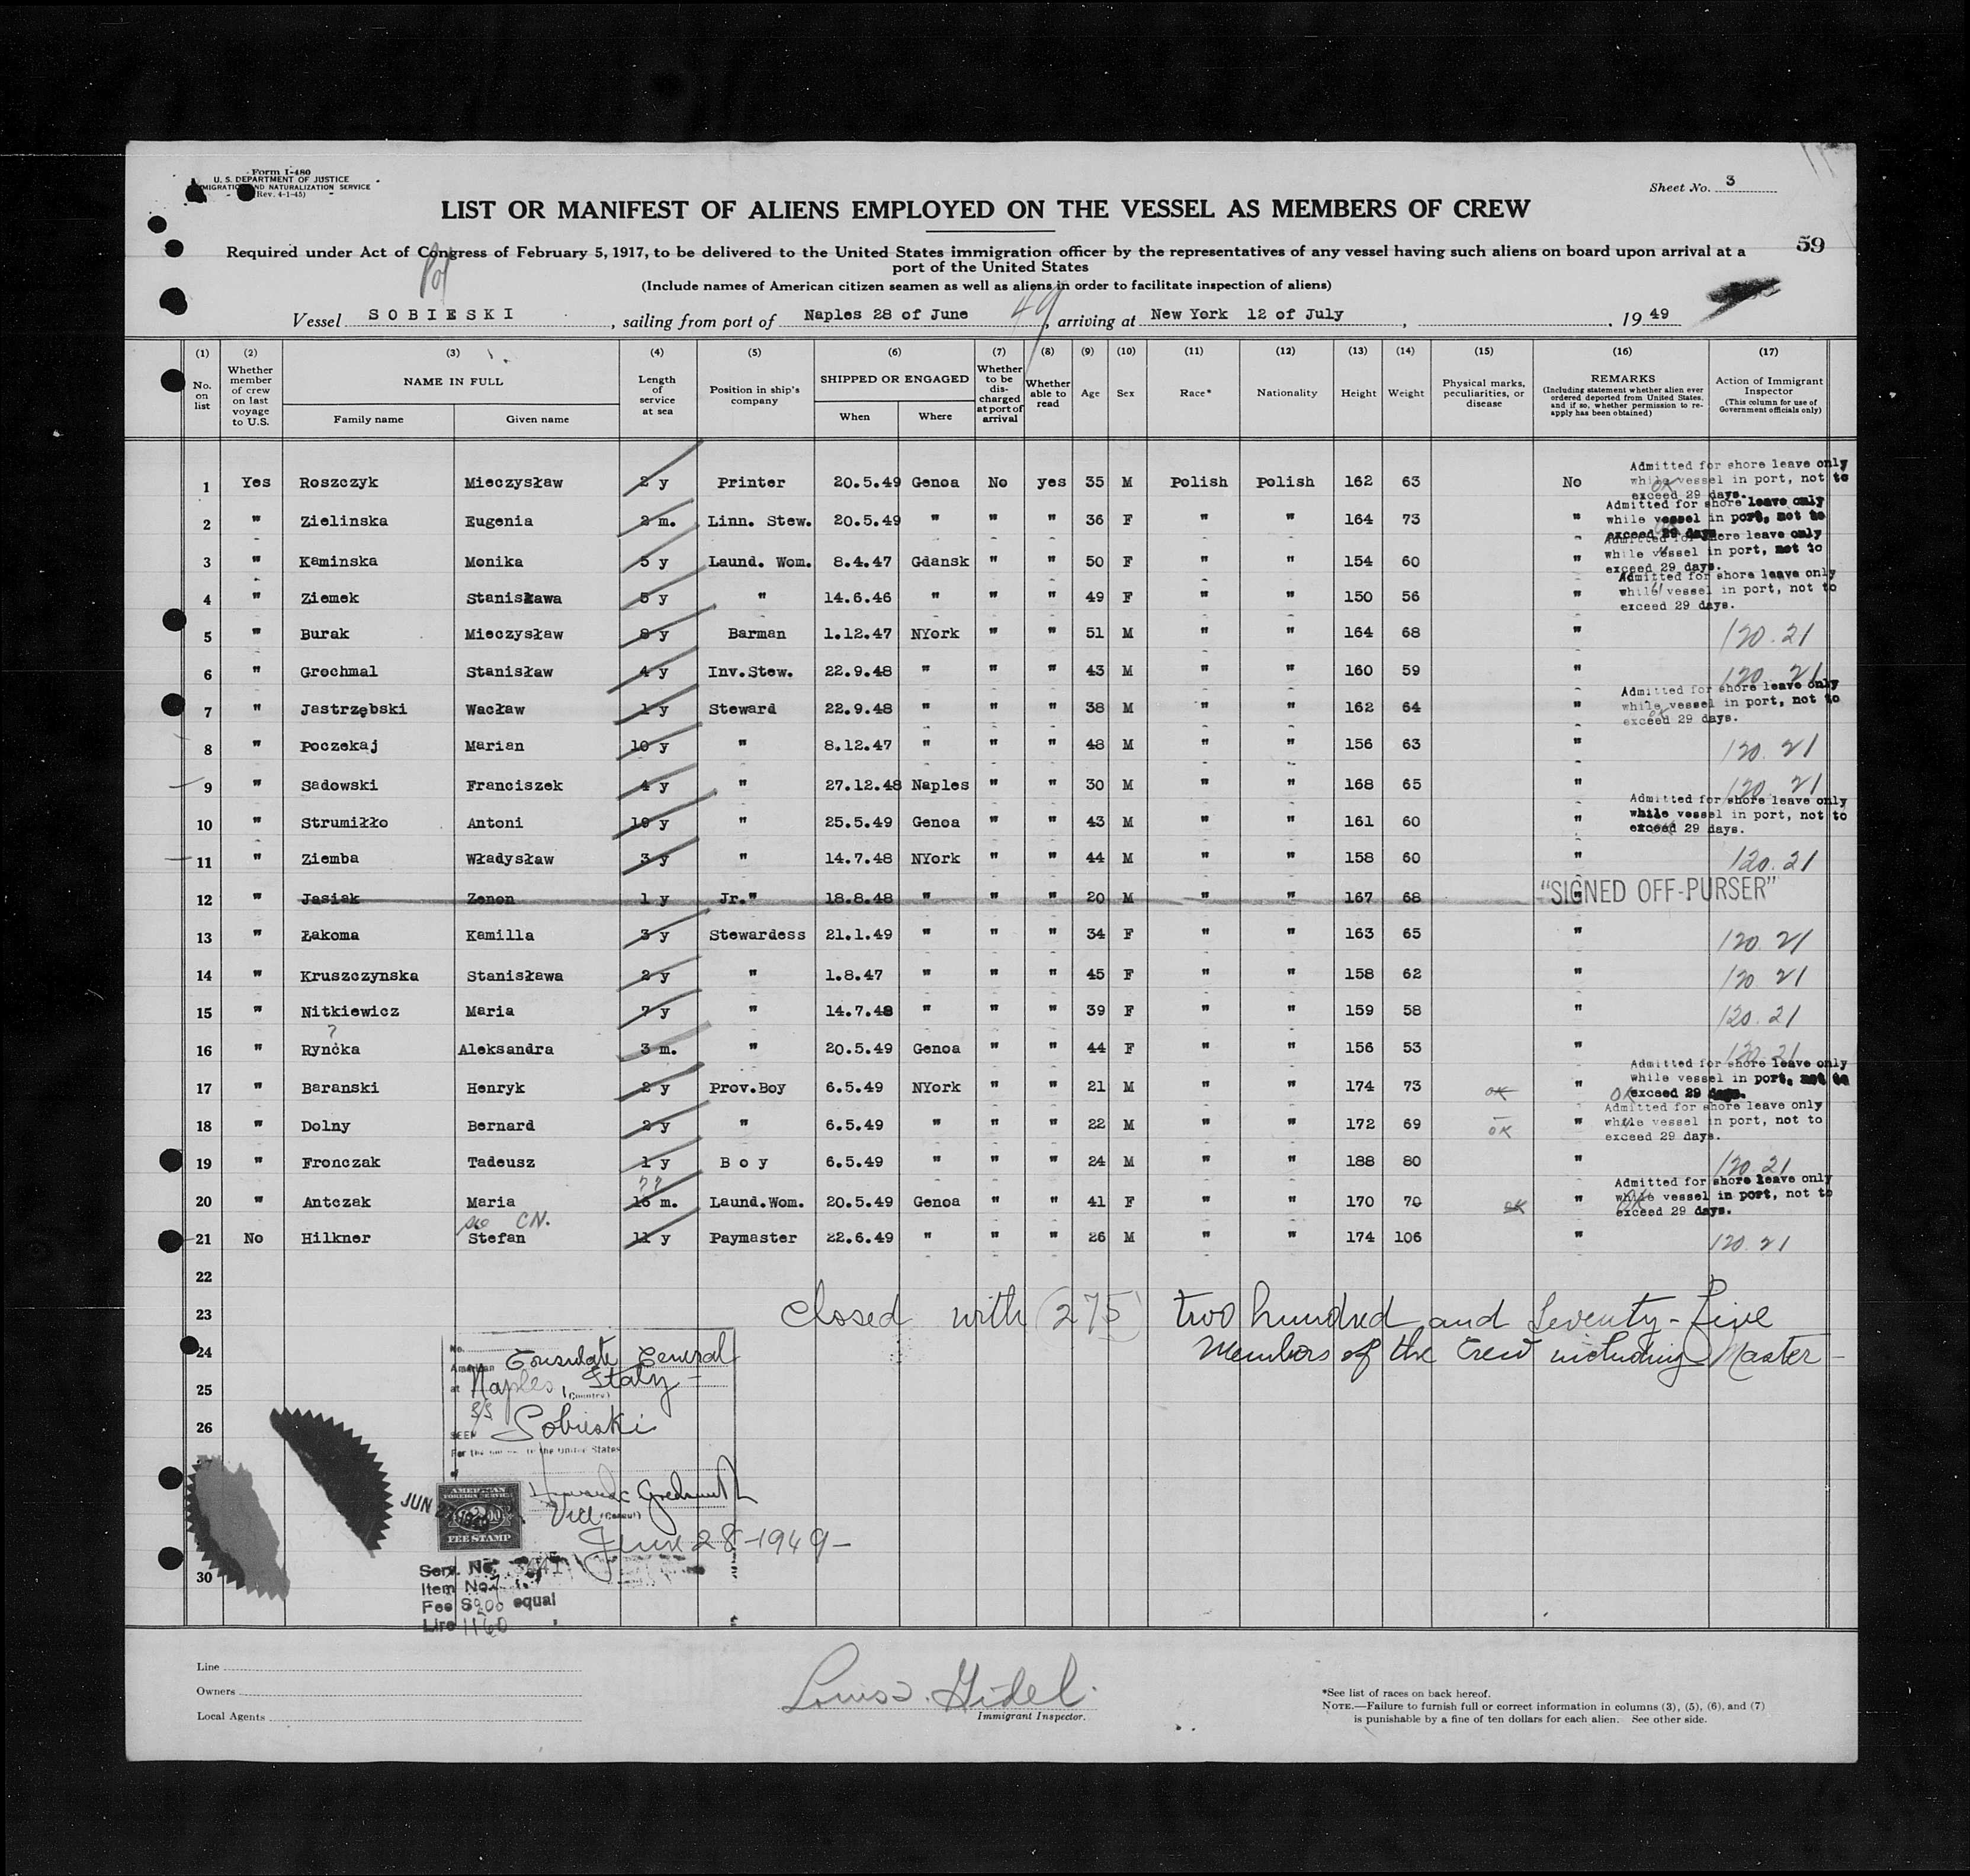 Form I-480
U. S. DEPARTMENT OF JUSTICE
IMMIGRATION AND NATURALIZATION SERVICE
(Rev. 4-1-45)
Sheet No. 3
LIST OR MANIFEST OF ALIENS EMPLOYED ON THE VESSEL AS MEMBERS OF CREW
59
Required under Act of Congress of February 5, 1917, to be delivered to the United States immigration officer by the representatives of any vessel having such aliens on board upon arrival at a
port of the United States
(Include names of American citizen seamen as well as aliens in order to facilitate inspection of aliens)
Pol
49
Vessel SOBIESKI, sailing from port of Naples 28 of June, arriving at New York 12 of July, 1949
(1) (2) (3) (4) (5) (6) (7) (8) (9) (10) (11) (12) (13) (14) (15) (16) (17)
No. on list
Whether member of crew on last voyage to U.S.
NAME IN FULL
Family name Given name
Length of service at sea
Position in ship's company
SHIPPED OR ENGAGED
When Where
Whether to be discharged at port of arrival
Whether able to read
Age
Sex
Race*
Nationality
Height
Weight
Physical marks, peculiarities, or disease
REMARKS
(Including statement whether alien ever ordered deported from United States, and if so, whether permission to reapply has been obtained)
Action of Immigrant Inspector
(This column for use of Government officials only)
1 Yes Roszczyk Mieczysław 2 y Printer 20.5.49 Genoa No yes 35 M Polish Polish 162 63 No Admitted for shore leave only while vessel in port, not to exceed 29 days.
2 " Zielinska Eugenia 2 m. Linn. Stew. 20.5.49 " " " 36 F " " 164 73 " Admitted for shore leave only while vessel in port, not to exceed 29 days
3 " Kaminska Monika 5 y Laund. Wom. 8.4.47 Gdansk " " 50 F " " 154 60 " Admitted for shore leave only while vessel in port, not to exceed 29 days.
4 " Ziemek Stanisława 5 y " 14.6.46 " " " 49 F " " 150 56 " Admitted for shore leave only while vessel in port, not to exceed 29 days.
5 " Burak Mieczysław 8 y Barman 1.12.47 NYork " " 51 M " " 164 68 " 120.21
6 " Grochmal Stanisław 4 y Inv.Stew. 22.9.48 " " " 43 M " " 160 59 " 120 21
7 " Jastrzębski Wacław 1 y Steward 22.9.48 " " " 38 M " " 162 64 " Admitted for shore leave only while vessel in port, not to exceed 29 days.
8 " Poczekaj Marian 10 y " 8.12.47 " " " 48 M " " 156 63 " 120.21
9 " Sadowski Franciszek 4 y " 27.12.48 Naples " " 30 M " " 168 65 " 120 21
10 " Strumiłło Antoni 10 y " 25.5.49 Genoa " " 43 M " " 161 60 " Admitted for shore leave only while vessel in port, not to exceed 29 days.
11 " Ziemba Władysław 3 y " 14.7.48 NYork " " 44 M " " 158 60 " 120.21
12 " Jasiak Zenon 1 y Jr." 18.8.48 " " " 20 M " " 167 68 " "SIGNED OFF-PURSER"
13 " Łakoma Kamilla 3 y Stewardess 21.1.49 " " " 34 F " " 163 65 " 120 21
14 " Kruszczynska Stanisława 2 y " 1.8.47 " " " 45 F " " 158 62 " 120 21
15 " Nitkiewicz Maria 7 y " 14.7.48 " " " 39 F " " 159 58 " 120.21
16 " Ryncka Aleksandra 3 m. " 20.5.49 Genoa " " 44 F " " 156 53 " 120.21
17 " Baranski Henryk 2 y Prov.Boy 6.5.49 NYork " " 21 M " " 174 73 OK " OK Admitted for shore leave only while vessel in port, not to exceed 29 days.
18 " Dolny Bernard 2 y " 6.5.49 " " " 22 M " " 172 69 OK " Admitted for shore leave only while vessel in port, not to exceed 29 days.
19 " Fronczak Tadeusz 1 y Boy 6.5.49 " " " 24 M " " 188 80 " 120 21
20 " Antczak Maria 16 m. Laund.Wom. 20.5.49 Genoa " " 41 F " " 170 70 OK " Admitted for shore leave only while vessel in port, not to exceed 29 days.
see CN.
21 No Hilkner Stefan 11 y Paymaster 22.6.49 " " " 26 M " " 174 106 " 120.21
22
23 Closed with (275) two hundred and Seventy-five
24 Members of the Crew including Master -
25
26
30
No.
American Consulate General
at Naples, Italy -
(Country)
S/S
SEEN Sobieski
For the to the United States
Vice (Consul)
June 28-1949-
JUN
AMERICAN
FOREIGN SERVICE
FEE STAMP
Serv. No.
Item No.
Fee $ 2.00 equal
Lire 1160
Line
Owners
Local Agents
Louis J. Gidel.
Immigrant Inspector.
*See list of races on back hereof.
NOTE.—Failure to furnish full or correct information in columns (3), (5), (6), and (7)
is punishable by a fine of ten dollars for each alien. See other side.